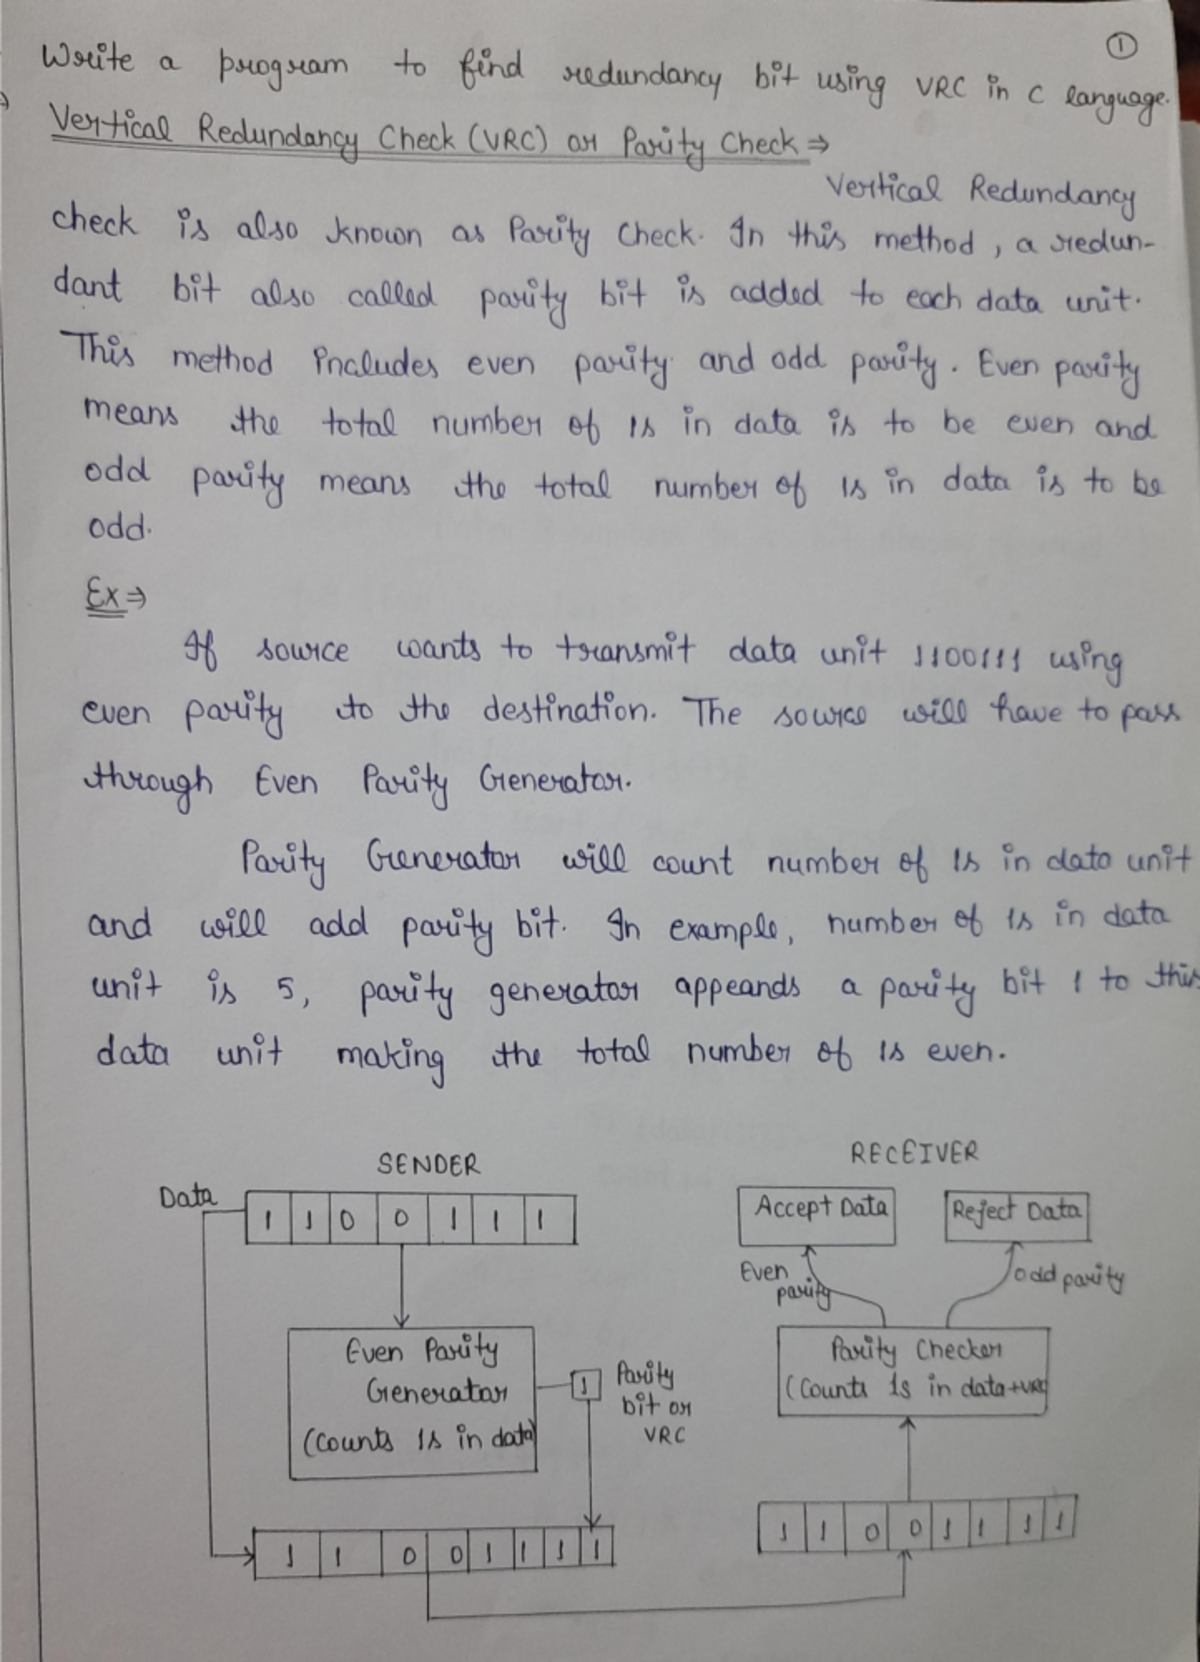 ①
Write a program to find redundancy bit using VRC in C language.
Vertical Redundancy Check (VRC) or Parity Check ⇒
Vertical Redundancy
check is also known as Parity Check. In this method, a redun-
dant bit also called parity bit is added to each data unit.
This method includes even parity and odd parity. Even parity
means the total number of 1s in data is to be even and
odd parity means the total number of 1s in data is to be
odd.
Ex ⇒
If source wants to transmit data unit 1100111 using
even parity to the destination. The source will have to pass
through Even Parity Generator.
Parity Generator will count number of 1s in data unit
and will add parity bit. In example, number of 1s in data
unit is 5, parity generator appeands a parity bit 1 to this
data unit making the total number of 1s even.
SENDER
Data
1 1 0 0 1 1 1
Even Parity
Generator
(Counts 1s in data)
1
Parity
bit or
VRC
1 1 0 0 1 1 1 1
RECEIVER
Accept Data
Reject Data
Even
parity
odd parity
Parity Checker
(Counts 1s in data+VRC
1 1 0 0 1 1 1 1